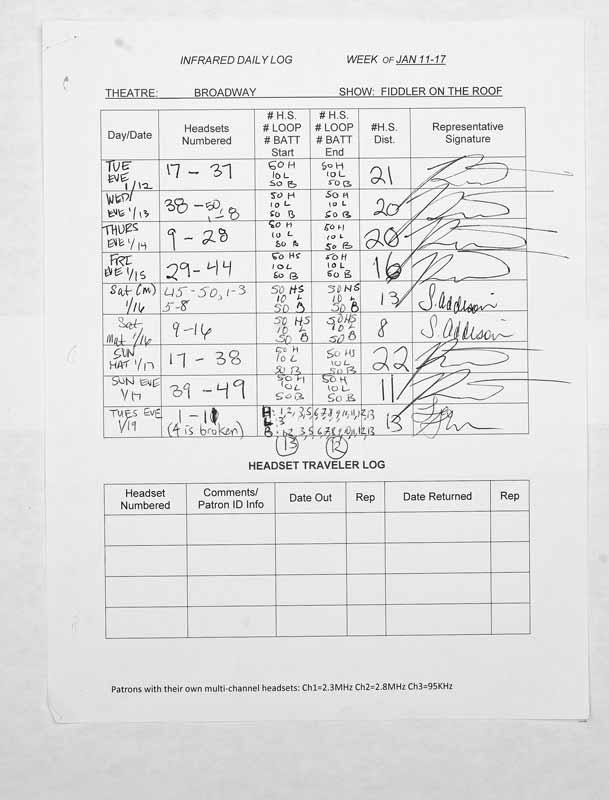 INFRARED DAILY LOG WEEK OF JAN 11-17
THEATRE: BROADWAY SHOW: FIDDLER ON THE ROOF
Day/Date
Headsets
Numbered
# H.S.
# LOOP
# BATT
Start
# H.S.
# LOOP
# BATT
End
#H.S.
Dist.
Representative
Signature
TUE
EVE
1/12
17 - 37
50 H
10 L
50 B
50 H
10 L
50 B
21
WED/
EVE 1/13
38 - 50,
1-8
50 H
10 L
50 B
50 H
10 L
50 B
20
THURS
EVE 1/14
9 - 28
50 H
10 L
50 B
50 H
10 L
50 B
20
FRI
EVE 1/15
29 - 44
50 HS
10 L
50 B
50 H
10 L
50 B
16
Sat (m)
1/16
45-50, 1-3
5-8
50 HS
10 L
50 B
50 HS
10 L
50 B
13
S. Addison
Sat
Mat 1/16
9-16
50 HS
10 L
50 B
50 HS
10 L
50 B
8
S. Addison
SUN
MAT 1/17
17 - 38
50 H
10 L
50 B
50 HS
10 L
50 B
22
SUN EVE
1/17
39 - 49
50 H
10 L
50 B
50 H
10 L
50 B
11
TUES EVE
1/19
1 - 11
(4 is broken)
H: 1, 2, 3, 5, 6, 7, 8, 9, 10, 11, 12, 13
L: 3
B: 1, 2, 3, 5, 6, 7, 8, 9, 10, 11, 12, 13
13
13 12
HEADSET TRAVELER LOG
Headset
Numbered
Comments/
Patron ID Info
Date Out
Rep
Date Returned
Rep
Patrons with their own multi-channel headsets: Ch1=2.3MHz Ch2=2.8MHz Ch3=95KHz